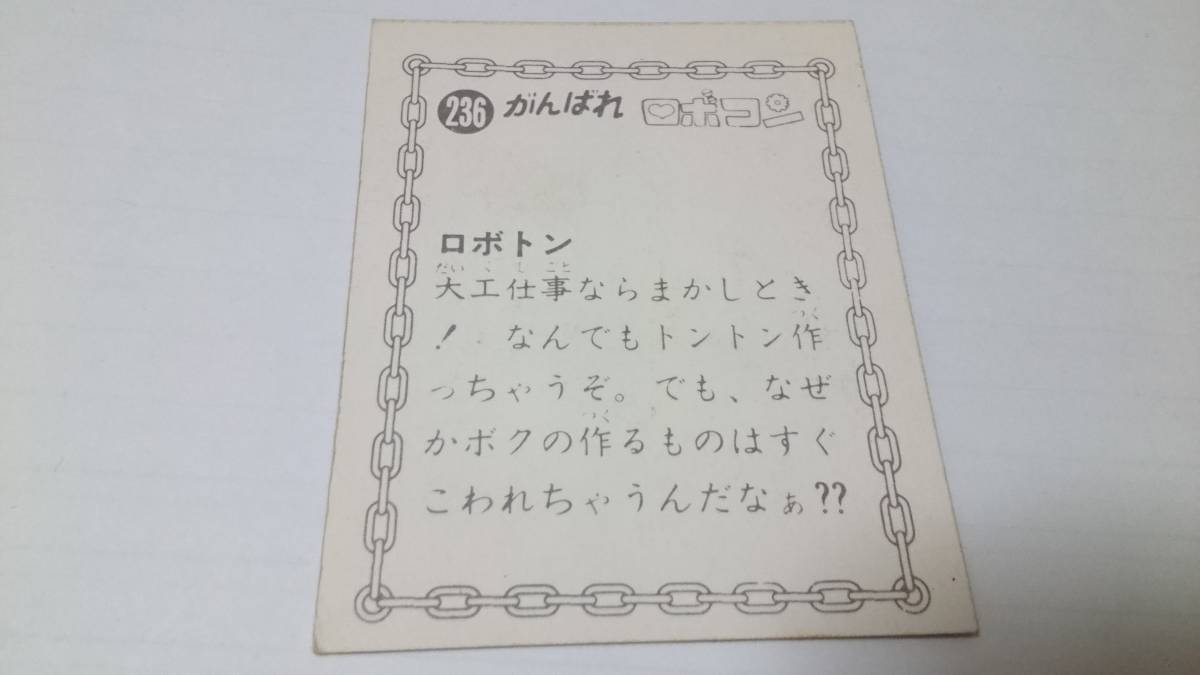 236 がんばれ ロボコン
ロボトン
だいくしごと
大工仕事ならまかしとき
つく
！ なんでもトントン作
っちゃうぞ。でも、なぜ
つく
かボクの作るものはすぐ
こわれちゃうんだなぁ??